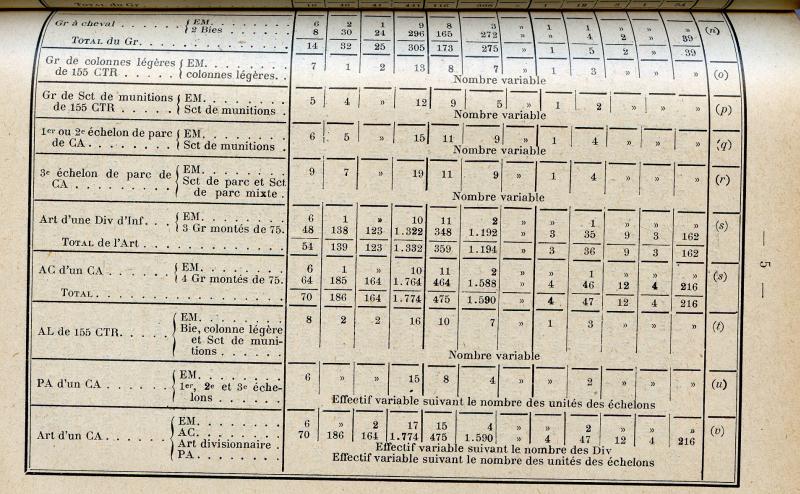 TOTAL du Gr. 16 46 41 441 316 306 » 1 12 3 1 54
Gr à cheval { EM. 6 2 1 9 8 3 » 1 1 » » » (n)
2 Bies 8 30 24 296 165 272 » » 4 2 » 39
TOTAL du Gr. 14 32 25 305 173 275 » 1 5 2 » 39
Gr de colonnes légères { EM. 7 1 2 13 8 7 » 1 3 » » » (o)
de 155 CTR { colonnes légères. Nombre variable
Gr de Sct de munitions { EM. 5 4 » 12 9 5 » 1 2 » » » (p)
de 155 CTR { Sct de munitions Nombre variable
1er ou 2e échelon de parc { EM. 6 5 » 15 11 9 » 1 4 » » » (q)
de CA { Sct de munitions Nombre variable
3e échelon de parc de { EM. 9 7 » 19 11 9 » 1 4 » » » (r)
CA { Sct de parc et Sct
de parc mixte. Nombre variable
Art d'une Div d'Inf. { EM. 6 1 » 10 11 2 » » 1 » » » (s)
3 Gr montés de 75. 48 138 123 1.322 348 1.192 » 3 35 9 3 162
TOTAL de l'Art 54 139 123 1.332 359 1.194 » 3 36 9 3 162
AC d'un CA { EM. 6 1 » 10 11 2 » » 1 » » » (s)
4 Gr montés de 75. 64 185 164 1.764 464 1.588 » 4 46 12 4 216
TOTAL 70 186 164 1.774 475 1.590 » 4 47 12 4 216
AL de 155 CTR. { EM. 8 2 2 16 10 7 » 1 3 » » » (t)
Bie, colonne légère
et Sct de muni-
tions Nombre variable
PA d'un CA { EM. 6 » » 15 8 4 » » 2 » » » (u)
1er, 2e et 3e éche-
lons Effectif variable suivant le nombre des unités des échelons
Art d'un CA { EM. 6 » 2 17 15 4 » » 2 » » » (v)
AC. 70 186 164 1.774 475 1.590 » 4 47 12 4 216
Art divisionnaire. Effectif variable suivant le nombre des Div
PA. Effectif variable suivant le nombre des unités des échelons
— 5 —